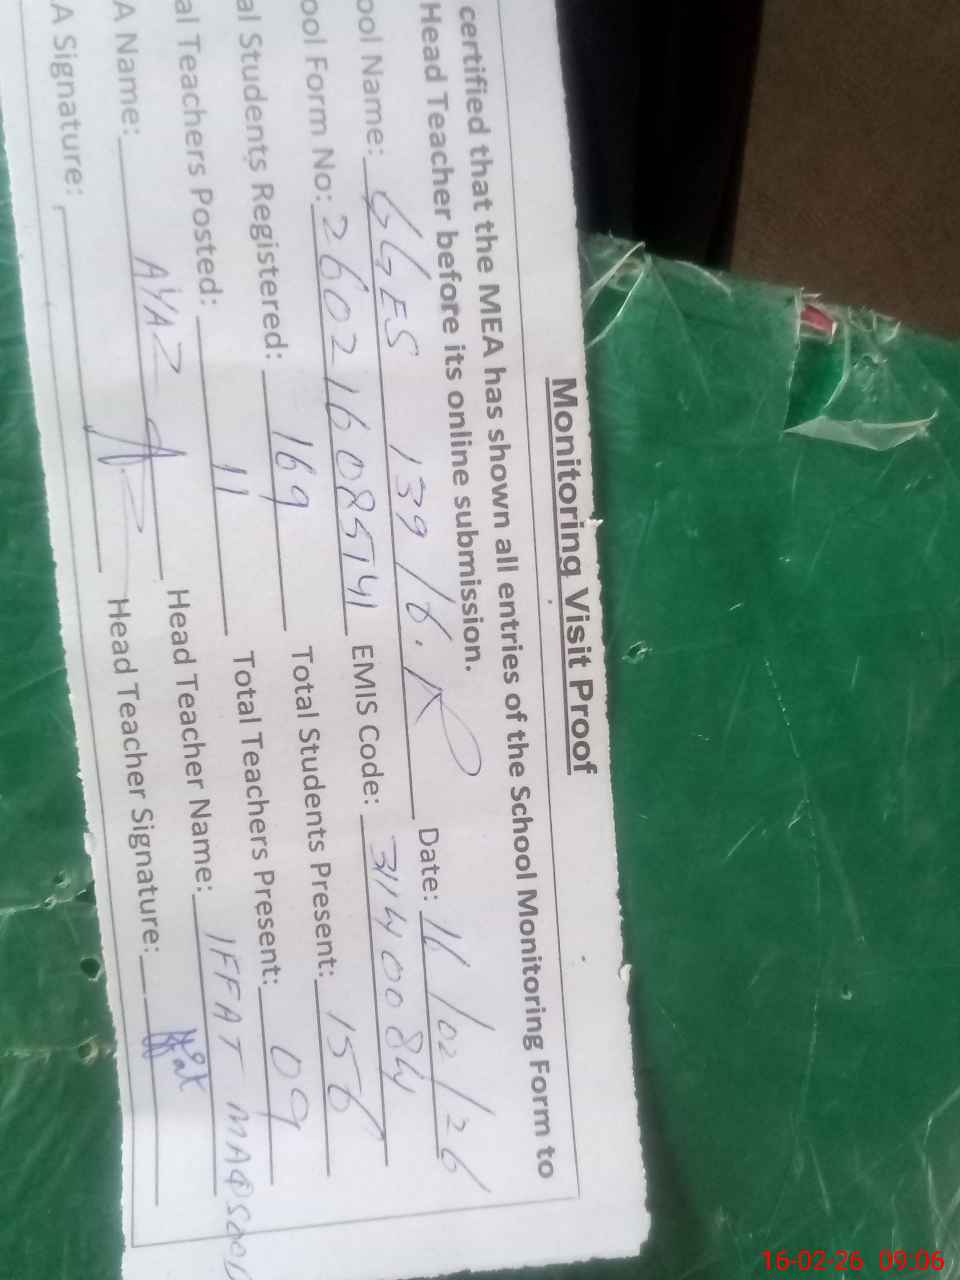 Monitoring Visit Proof
certified that the MEA has shown all entries of the School Monitoring Form to
Head Teacher before its online submission.
ool Name: GGES 139/6.R Date: 16/02/26
ool Form No: 260216085141 EMIS Code: 31140084
al Students Registered: 169 Total Students Present: 156
al Teachers Posted: 11 Total Teachers Present: 09
A Name: AYAZ Head Teacher Name: IFFAT MAQSOOD
A Signature: Head Teacher Signature:
16-02-26 09:06